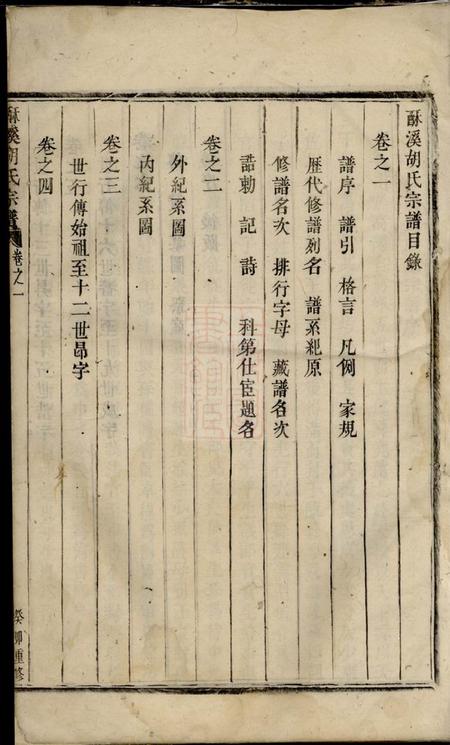 酥溪胡氏宗譜目錄
卷之一
譜序 譜引 格言 凡例 家規
歷代修譜列名 譜系紀原
修譜名次 排行字母 藏譜名次
誥勅 記 詩 科第仕宦題名
卷之二
外紀系圖
內紀系圖
卷之三
世行傳始祖至十二世昂字
卷之四
酥溪胡氏宗譜 卷之一
癸卯重修